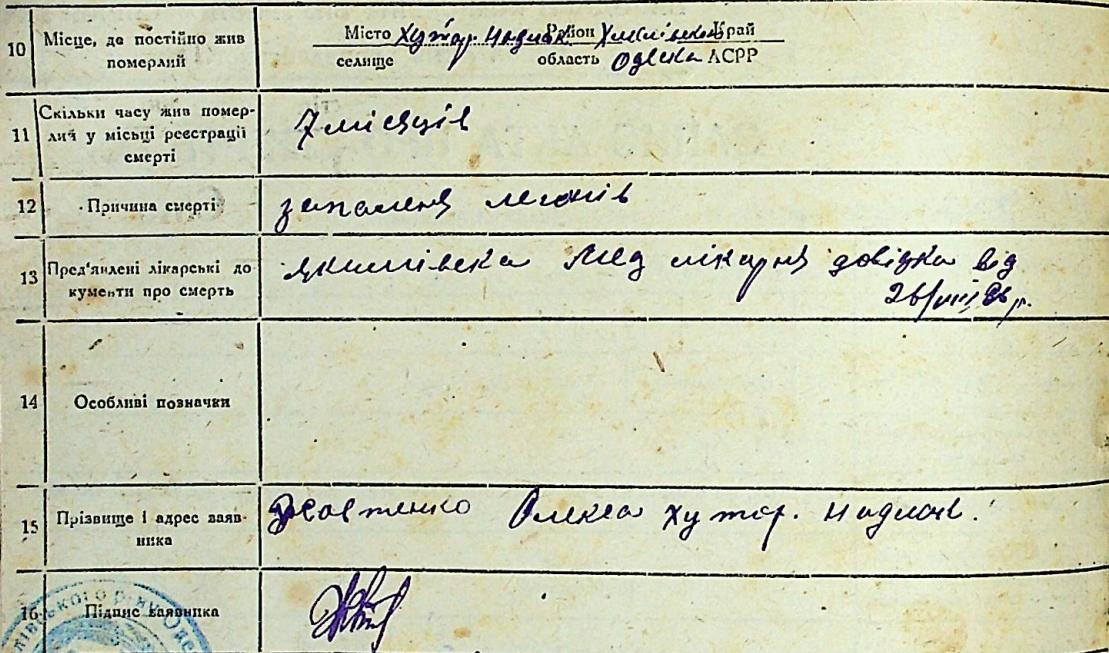 10 Місце, де постійно жив померлий
Місто Хутор. Надлак. Район Хмелівський Край
селище область Одеска АСРР
11 Скільки часу жив помер-
лий у місьці реєстрації
смерті
7 місяців
12 Причина смерті
запаленя легенів
13 Пред'явлені лікарські до
кументи про смерть
мед лікарня довідка від
26/VIII 36 р.
14 Особливі позначки
15 Прізвище і адрес заяв-
ника
Жовтенко Олекса хутор.
16 Підпис заявника